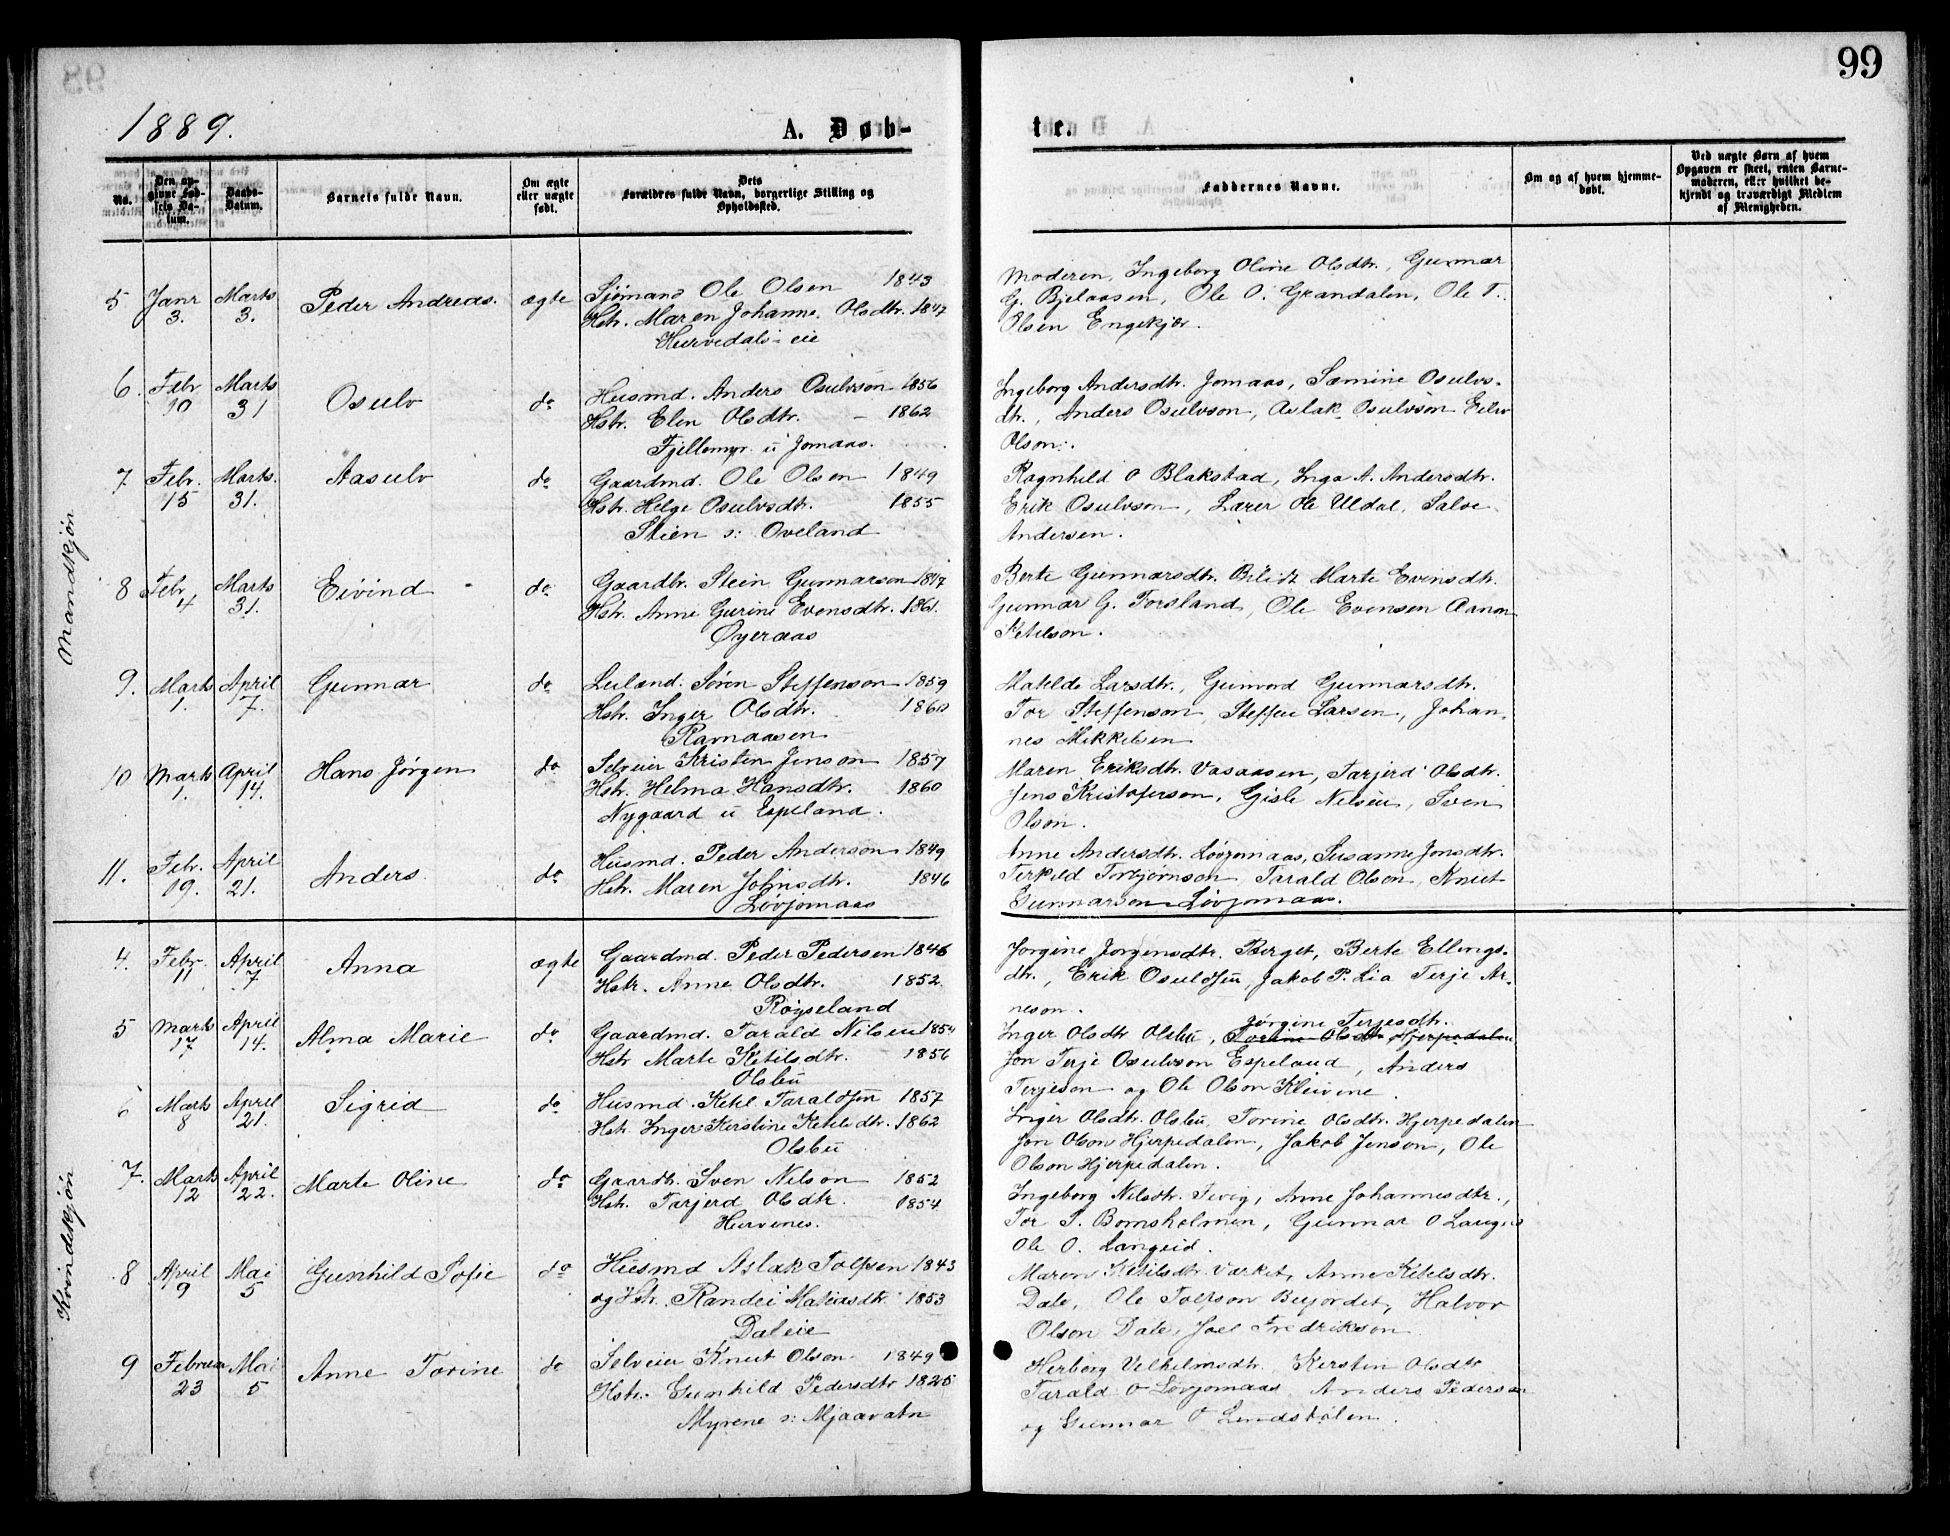 99
1889.
A. Døb-
te.
No.
Den opgivne Fødsels Datum.
Daabs-Datum.
Barnets fulde Navn.
Om ægte eller uægte født.
Dets Forældres fulde Navn, borgerlige Stilling og Opholdssted.
Faddernes Navne.
Om og af hvem hjemmedøbt.
Ved uægte Børn af hvem Opgaven er skeet, enten Barnemoderen, eller hvilket bekjendt og troværdigt Medlem af Menigheden.
Mandkjøn
5 Janr 3. Marts 3. Peder Andreas. ægte Sjømand Ole Olsen 1843
Hstr. Maren Johanne Olsdtr. 1847
Hurvedals-eie
Moderen, Ingeborg Oline Olsdtr., Gunnar
G. Bjelaasen, Ole O. Grandalen, Ole T.
Olsen Engekjær.
6. Febr 10 Marts 31 Osulv do Husmd. Anders Osulvson 1856
Hstr. Elen Olsdtr. – 1862
Fjellemyr u Jomaas.
Ingeborg Andersdtr. Jomaas, Sæmine Osulvs-
dtr., Anders Osulvson, Aslak Osulvson
Olson.
7 Febr. 15 Marts. 31. Aasulv do Gaardmd. Ole Olsen 1849
Hstr. Helge Osulvsdtr. 1855
Stien s: Oveland
Ragnhild O Blakstad, Inga A. Andersdtr.
Erik Osulvson, Lærer Ole Uldal, Salve
Andersen.
8 Febr 4 Marts 31. Eivind do Gaardbr. Stein Gunnarson 1847
Hstr. Anne Gurine Evensdtr. 1861.
Øyeraas
Berte Gunnarsdtr. Marte Evensdtr.
Gunnar G. Torsland, Ole Evensen Aanon
Ketilson.
9. Marts 1. April 7. Gunnar do Leilænd. Søren Steffenson 1859
Hstr. Inger Olsdtr. 1860
Ramaasen
Matilde Larsdtr., Gunvord Gunnarsdtr.
Tor Steffenson, Steffen Larsen, Johan-
nes Mikkelsen
10 Marts 1. April 14. Hans Jørgen do Selveier Kristen Jenson 1857
Hstr. Helma Hansdtr. 1860
Nygaard u Espeland.
Maren Eriksdtr. Vasaasen, Tarjerd Olsdtr.
Jens Kristoferson, Gisle Nilsen, Sven
Olson.
11. Febr. 19. April 21. Anders do Husmd. Peder Anderson 1849
Hstr. Maren Johnsdtr. 1846
Løvjomaas
Anne Andersdtr. Løvjomaas, Susanne Jonsdtr.
Terkild Torbjørnson, Tarald Olson, Knut
Gunnarsen Løvjomaas.
Kvindekjøn
4. Febr. 11 April 7 Anna ægte Gaardmd. Peder Pedersen 1846
Hstr. Anne Olsdtr. 1852
Røyseland
Jorgine Jorgensdtr. Berget, Berte Ellings-
dtr., Erik Osuldsen, Jakob P. Lia Terje Ar-
neson.
5 Marts 17 April 14. Alma Marie do Gaardmd. Tarald Nilsen 1854
Hstr Marte Ketilsdtr. 1856
Olsbu
Jørgine Terjesdtr.
Inger Olsdtr Olsbu, Torine Olsdtr Hjerpedalen
Jon Terje Osulvson Espeland, Anders
Terjeson og Ole Olson Kleivene.
6 Marts 8 April 21. Sigrid do Husmd. Ketil Taraldsen 1857
Hstr. Inger Kerstine Ketilsdtr. 1862
Olsbu
Inger Olsdtr. Olsbu, Torine Olsdtr. Hjerpedalen
Jon Olson Hjerpedalen, Jakob Jenson, Ole
Olson Hjerpedalen.
7. Marts 12 April 22. Marte Oline do Gaardb. Sven Nilson 1852
Hstr. Tarjerd Olsdtr. 1854
Hurvenes.
Ingeborg Nilsdtr. Tveig, Anne Johannesdtr.,
Tor S. Bomsholmen, Gunnar O Langeid
Ole O. Langeid.
8 April 9 Mai 5 Gunhild Sofie do Husmd Aslak Tolfsen 1843
og Hstr. Randei Mathiasdtr. 1853
Daleie
Maren Ketilsdtr. Varket, Anne Ketilsdtr.
Dale, Ole Tolfson Halvor
Olson Dale, Joel Fredrikson
9 Februar 23 Mai 5 Anne Torine do Selveier Knut Olson 1849
Hstr. Gunhild Pedersdtr 1825
Myrene s: Mjaavatn
Herborg Velhelmsdtr. Kerstin Olsdtr
Tarald O Løvjomaas Anders Pederson
og Gunnar O Lindstølen.